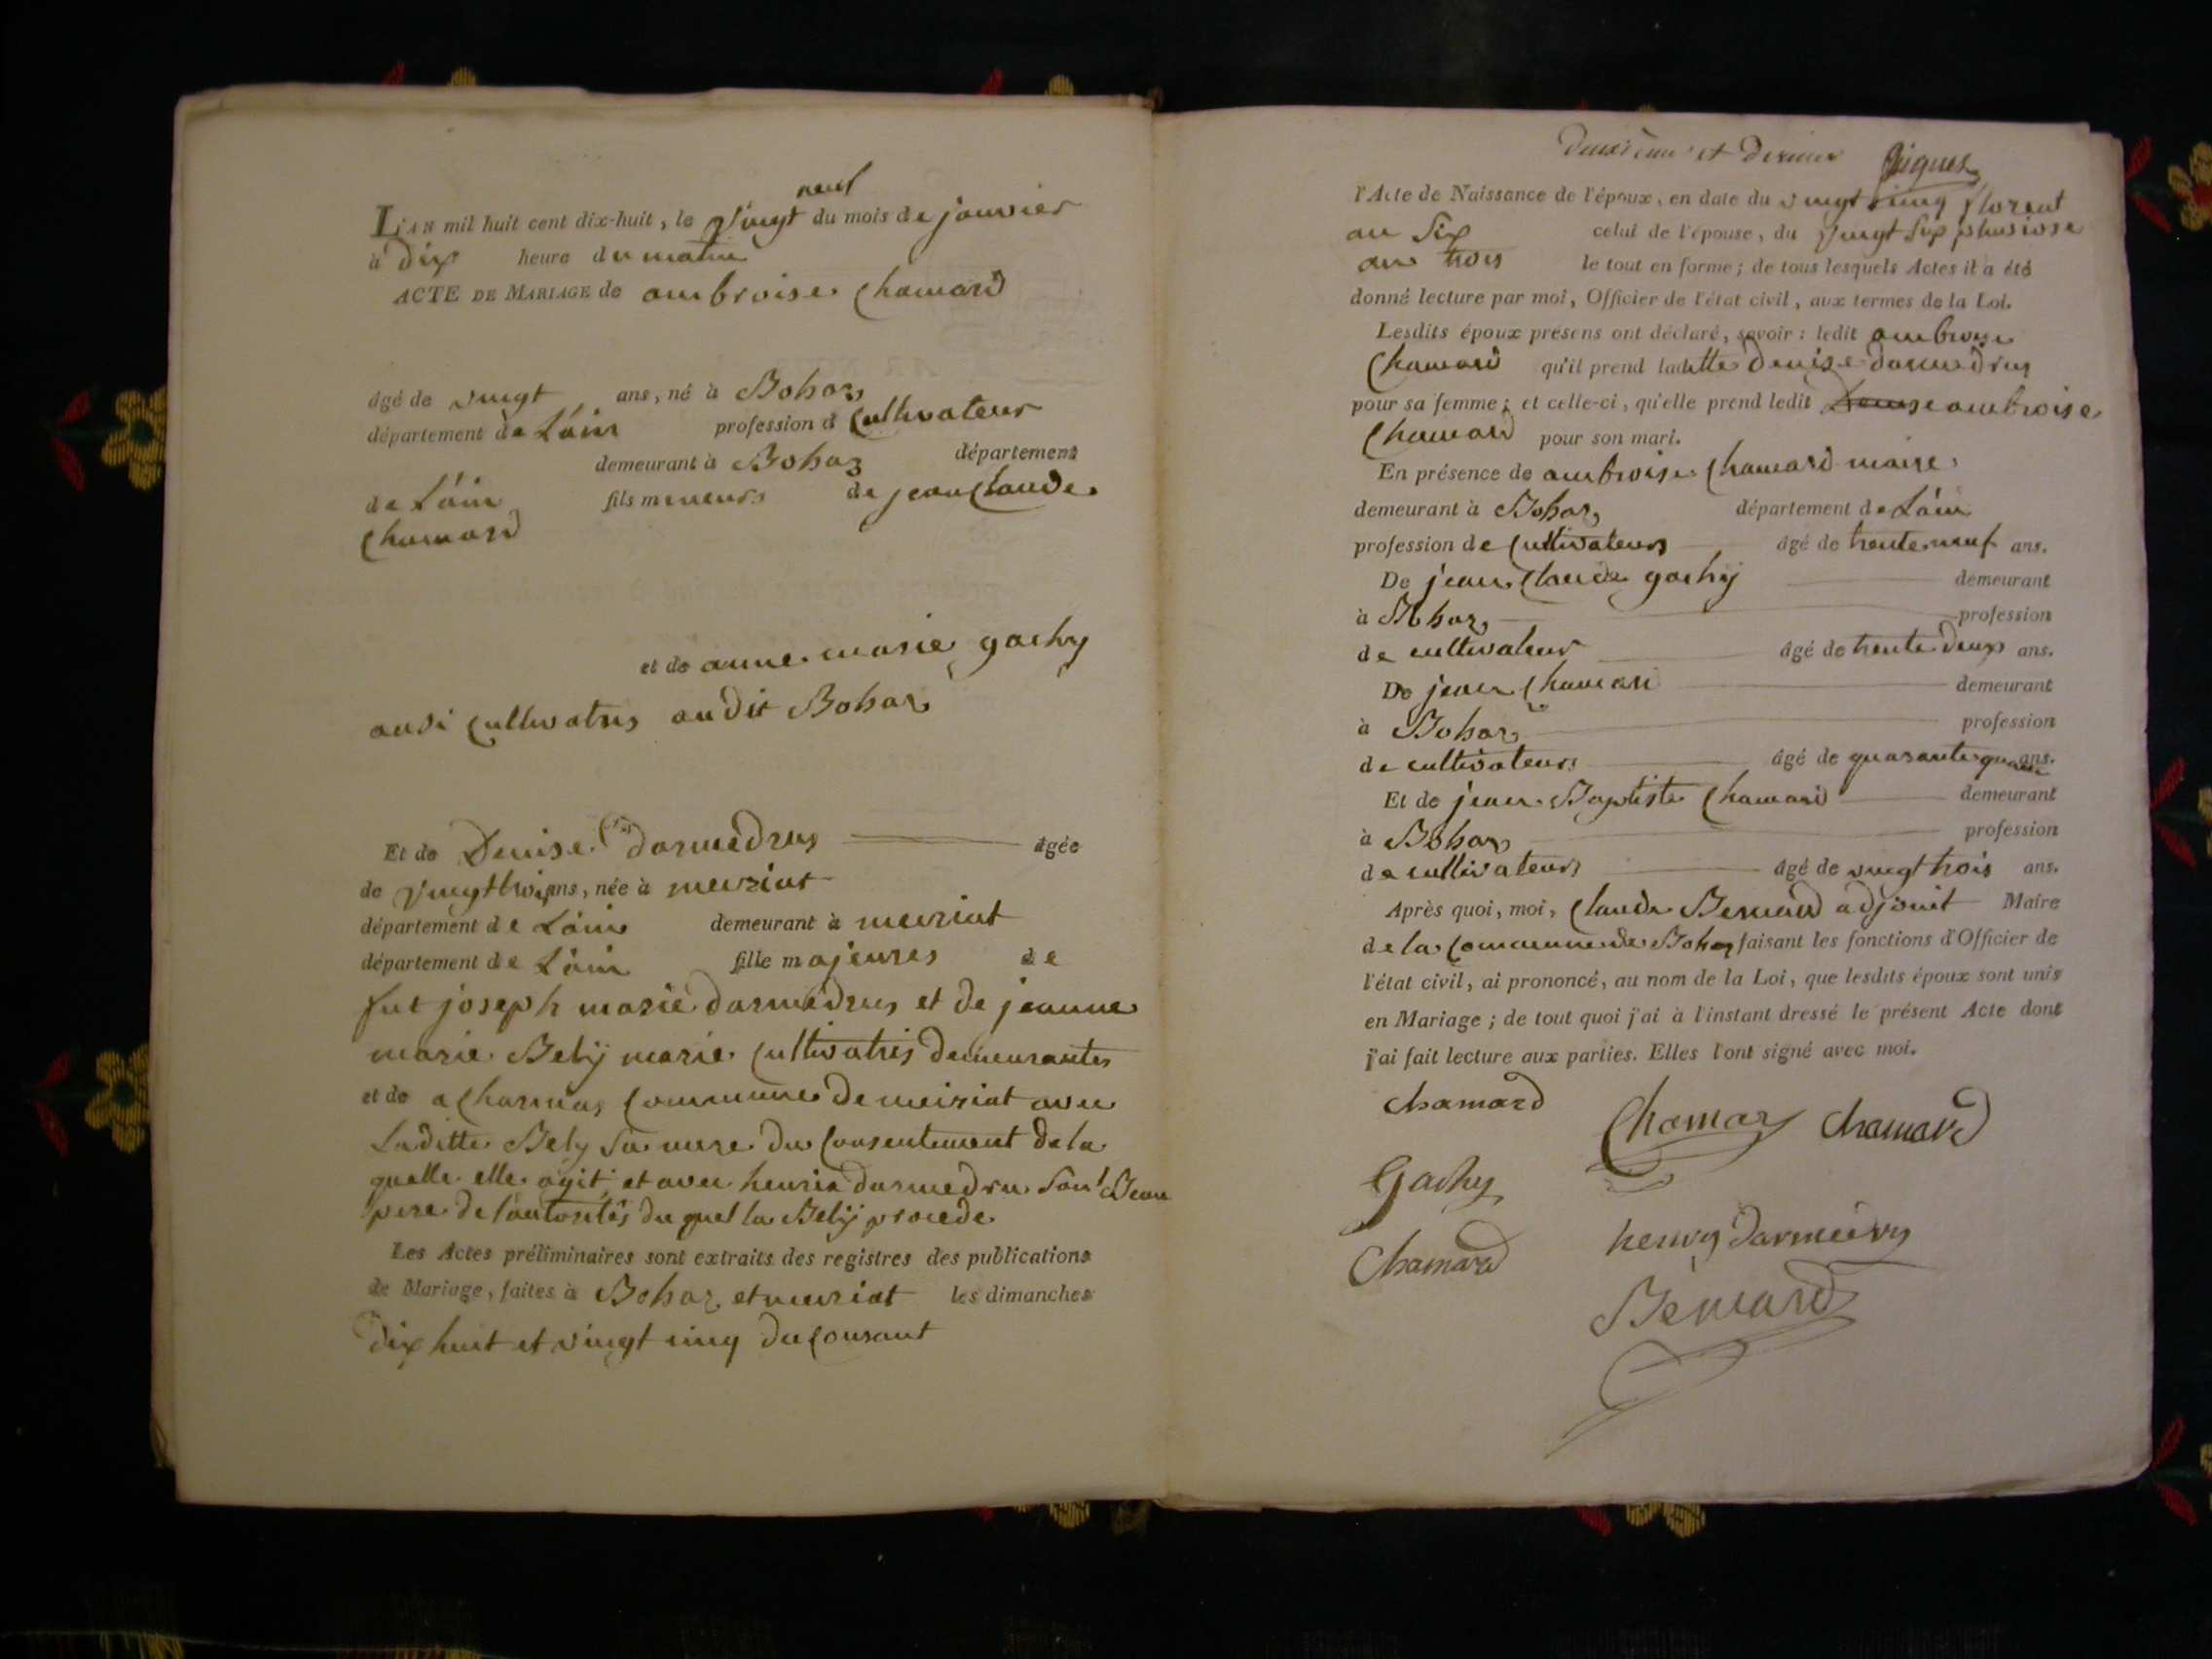 neuf
L'AN mil huit cent dix-huit, le vingt du mois de janvier
à dix heure du matin
ACTE DE MARIAGE de ambroise Chamard
âgé de vingt ans, né à Bohaz
département de Láin profession d Cultivateur
demeurant à Bohaz département
de Láin fils mineurs de jean Claude
Chamard
et de anne marie gachy
ausi Cultivatris audit Bohaz
Et de Denise darmedrus âgée
de vingt trois ans, née à meiriat
département de Láin demeurant à meiriat
département de Láin fille majeures de
fut joseph marie darmedrus et de jeanne
marie Belij marie Cultivatris demeurantes
et de a Charinas Commune de meiriat avec
Laditte Bely sa mere du Consentement de la
quelle elle agit et avec henrie darmedru son Beau
pere de l'autorités du quel la Belij procede
Les Actes préliminaires sont extraits des registres des publications
de Mariage, faites à Bohaz et meiriat les dimanches
dix huit et vingt cinq du Courant
Deuxième et dernier
l'Acte de Naissance de l'époux, en date du vingt cinq floreal
an Six celui de l'épouse, du vingt six pluviose
an trois le tout en forme; de tous lesquels Actes il a été
donné lecture par moi, Officier de l'état civil, aux termes de la Loi.
Lesdits époux présens ont déclaré, savoir: ledit ambroise
Chamard qu'il prend laditte denise darmedrus
pour sa femme; et celle-ci, qu'elle prend ledit Denise ambroise
Chamard pour son mari.
En présence de ambroise Chamard maire
demeurant à Bohaz département de Láin
profession de Cultivateurs âgé de trente neuf ans.
De jean Claude gachij demeurant
à Bohaz profession
de cultivateur âgé de trente deux ans.
De jean Chamard demeurant
à Bohaz profession
de cultivateurs âgé de quarante quatre ans.
Et de jean Baptiste Chamard demeurant
à Bohaz profession
de cultivateurs âgé de vingt trois ans.
Après quoi, moi, Claude Bernard adjoint Maire
de la Commune de Bohaz faisant les fonctions d'Officier de
l'état civil, ai prononcé, au nom de la Loi, que lesdits époux sont unis
en Mariage; de tout quoi j'ai à l'instant dressé le présent Acte dont
j'ai fait lecture aux parties. Elles l'ont signé avec moi.
Chamard Chamar Chamard
Gachy
Chamard henry Darmedru
Bernard